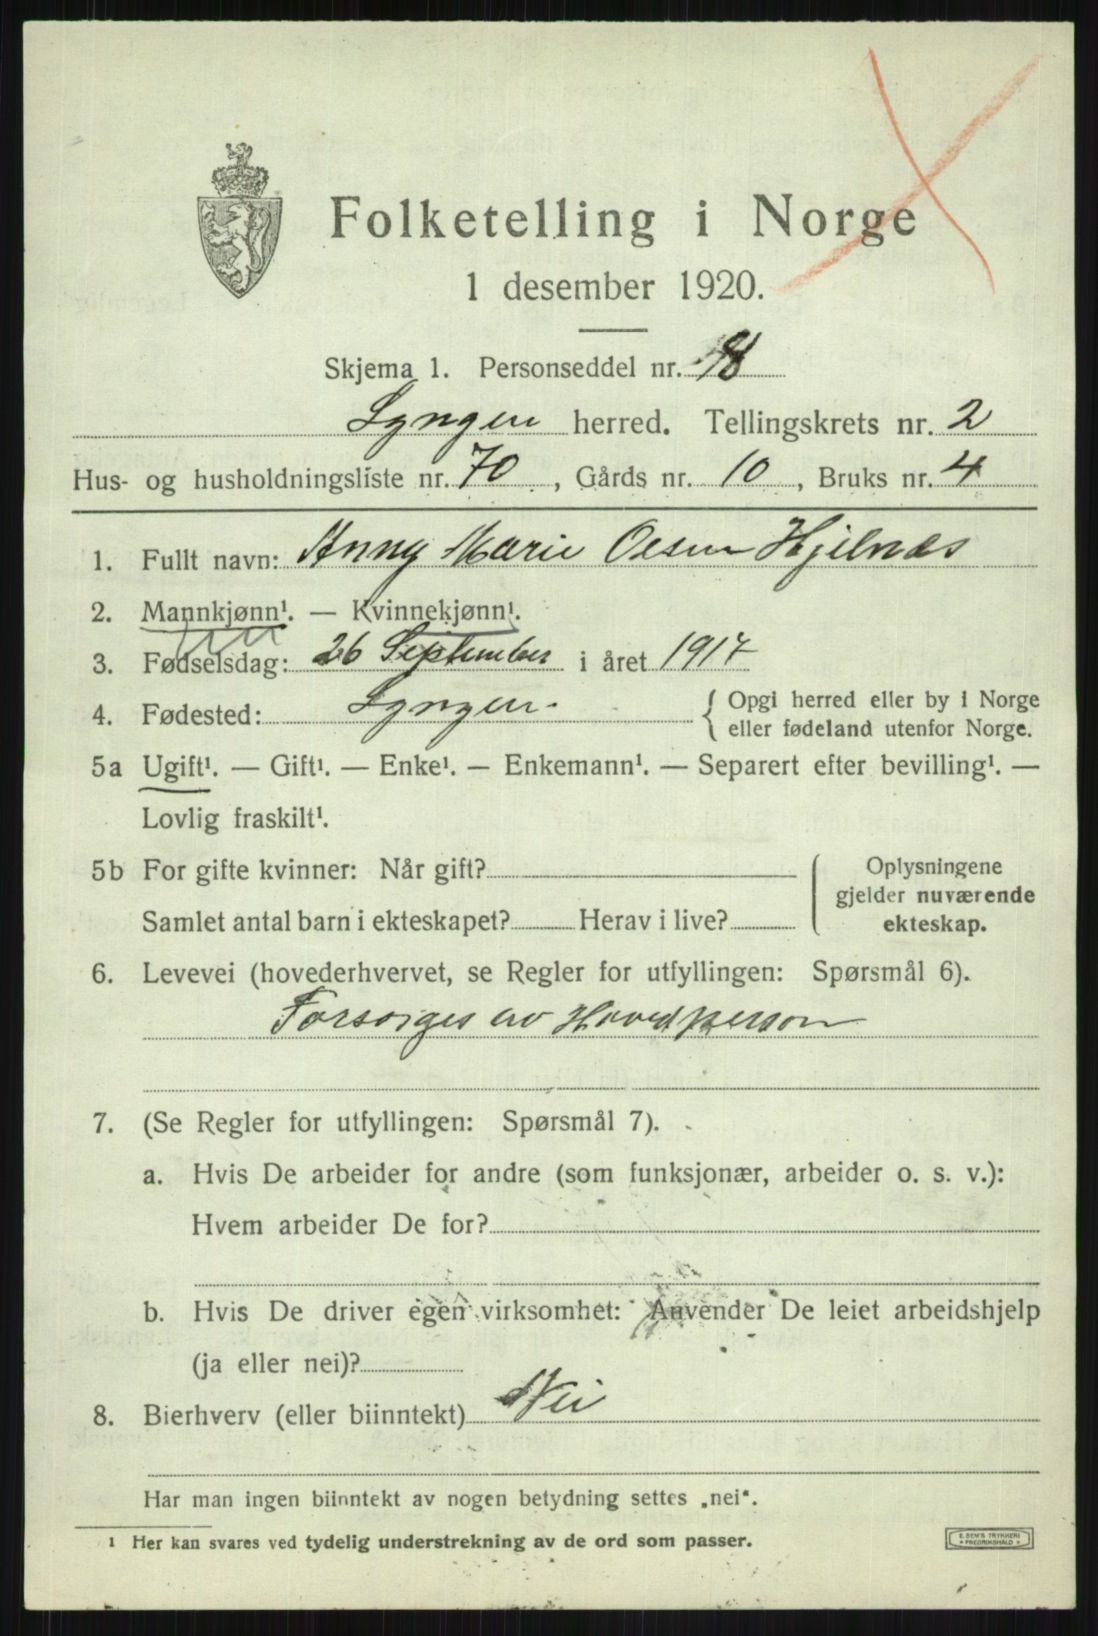 Folketelling i Norge
1 desember 1920.
Skjema 1. Personseddel nr. 8
Lyngen herred. Tellingskrets nr. 2
Hus- og husholdningsliste nr. 70, Gårds nr. 10, Bruks nr. 4
1. Fullt navn: Anny Marie Olsen Hjelnæs
2. Mannkjønn¹. — Kvinnekjønn¹.
3. Fødselsdag: 26 September i året 1917
4. Fødested: Lyngen. { Opgi herred eller by i Norge
eller fødeland utenfor Norge.
5a Ugift¹. — Gift¹. — Enke¹. — Enkemann¹. — Separert efter bevilling¹. —
Lovlig fraskilt¹.
5b For gifte kvinner: Når gift?
Samlet antal barn i ekteskapet? Herav i live?
Oplysningene
gjelder nuværende
ekteskap.
6. Levevei (hovederhvervet, se Regler for utfyllingen: Spørsmål 6).
Forsørges av Hovedperson
7. (Se Regler for utfyllingen: Spørsmål 7).
a. Hvis De arbeider for andre (som funksjonær, arbeider o. s. v.):
Hvem arbeider De for?
b. Hvis De driver egen virksomhet: Anvender De leiet arbeidshjelp
(ja eller nei)?
8. Bierhverv (eller biinntekt) Nei
Har man ingen biinntekt av nogen betydning settes „nei“.
¹ Her kan svares ved tydelig understrekning av de ord som passer.
E. SEM'S TRYKKERI
FREDRIKSHALD